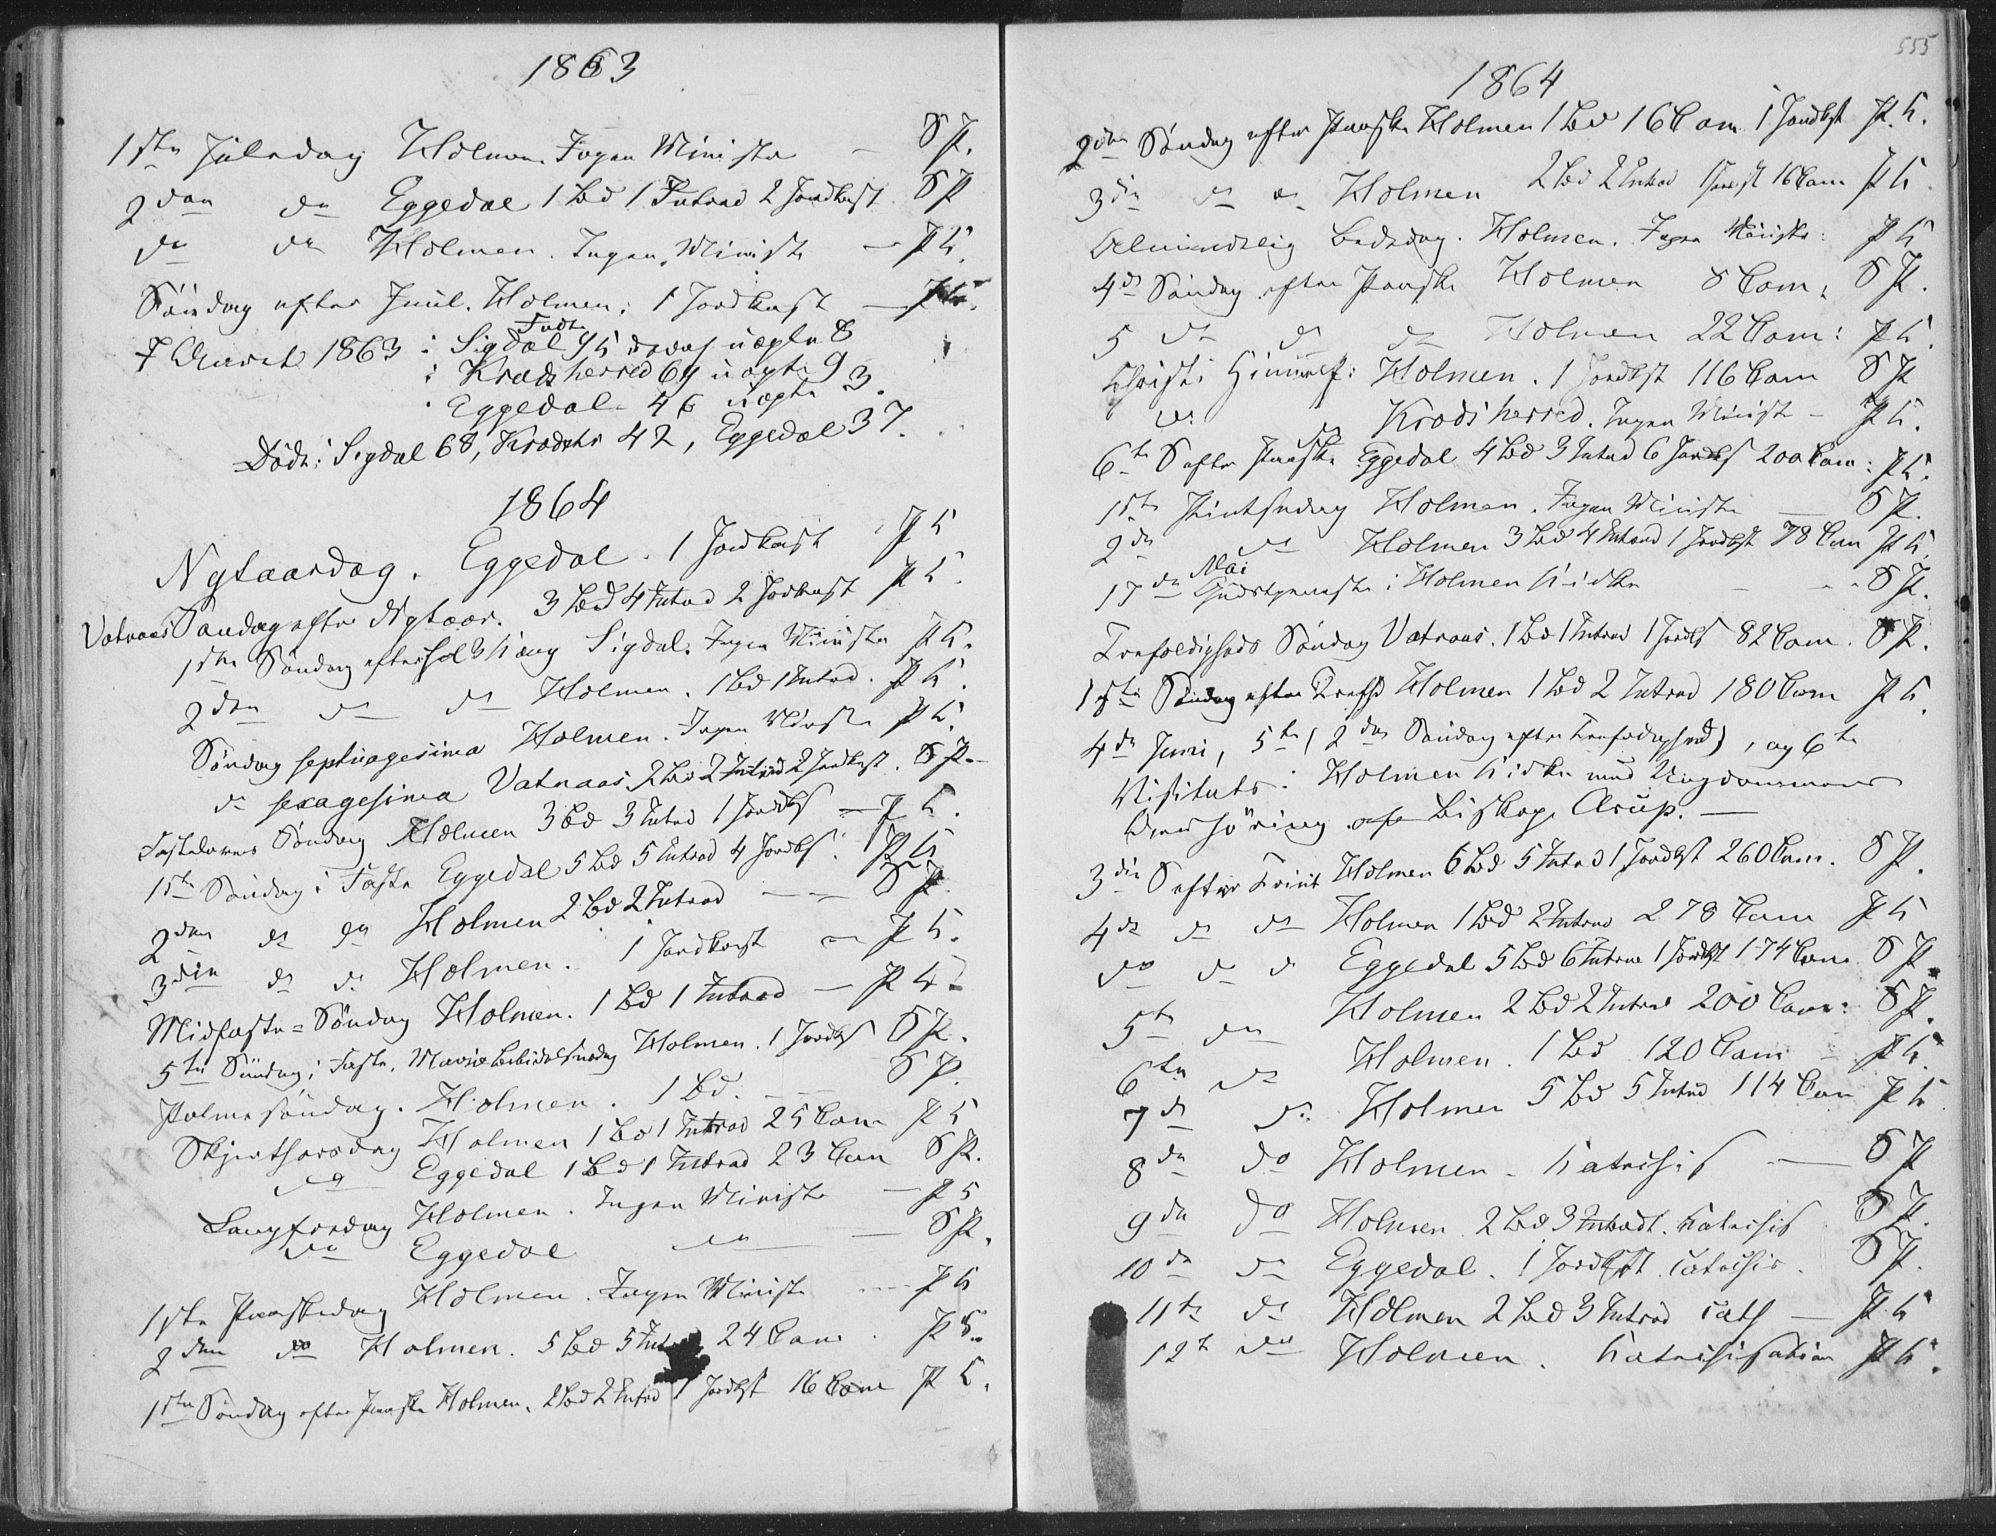 1863
1ste Juledag Holmen. Ingen Ministr — S P.
2den do Eggedal 1 Bd 1 Introd 2 Jordkast S P
do do Holmen. Ingen Minist — P K.
Söndag efter Juul. Holmen. 1 Jordkast —
I Aaret 1863 i Sigdal Födte 95 deraf uægte 8
i Krødsherred 64 uægte 9
Eggedal 46 uægte 3.
Døde: i Sigdal 68, Krødshr 42, Eggedal 37.
1864
Nytaarsdag. Eggedal. 1 Jordkast P K
Vatnaas Søndag efter Nytaar. 3 Bd 4 Introd 2 Jordkast P K.
1ste Søndag efter hel 3 Kong Sigdal. Ingen Ministr P K.
2den do do Holmen. 1 Bd 1 Introd. P K.
Søndag septuagesima Holmen. Ingen Ministr P K.
do sexagesima Vatnaas 2 Bd 2 Introd 2 Jordkast. S P.
Fastelavns Søndag Holmen 3 Bd 3 Introd 1 Jordks — P K.
1ste Søndag i Faste Eggedal 5 Bd 5 Introd 4 Jordks. P K
2den do do Holmen 2 Bd 2 Introd — S P.
3die do do Holmen. 1 Jordkast — P K.
Midfaste=Søndag Holmen. 1 Bd 1 Introd — P K
5te Søndag i Faste. Mariæ Bebudelsesdag Holmen. 1 Jordks S P.
Palmesøndag. Holmen. 1 Bd. — S P.
Skjertorsdag Holmen 1 Bd 1 Introd 25 Com P K
do Eggedal 1 Bd 1 Introd 23 Com S P.
Langfredag Holmen. Ingen Ministr — P K
do Eggedal do — S P.
1ste Paaskedag Holmen. Ingen Ministr — P K
2den do Holmen. 5 Bd 5 Int 24 Com. P K.
1ste Søndag efter Paaske Holmen. 2 Bd 2 Introd 1 Jordkst 16 Com P K.
555
1864
2den Søndag efter Paaske Holmen 1 Bd 16 Com 1 Jordkst P. K.
3die do do Holmen 2 Bd 2 Introd 1 Jordkst 16 Com P K.
Almindelig Bededag. Holmen. Ingen Ministr: P K
4de Søndag efter Paaske Holmen 8 Com. S P.
5 do do do Holmen 22 Com: P K.
Christi Himmelf: Holmen. 1 Jordkst 116 Com S P
do do Krødsherred. Ingen Minist — P K.
6te S efter Paaske Eggedal 4 Bd 3 Introd 6 Jordks 200 Com: P K.
1ste Pintsedag Holmen. Ingen Ministr — S P.
2den do Holmen 3 Bd 4 Introd 1 Jordkst 78 Com P K.
17de Mai Gudstjeneste i Holmen Kirke — S P.
Trefoldigheds Søndag Vatnaas. 1 Bd 1 Introd 1 Jordks 82 Com. S P.
1ste Søndag efter Trefd Holmen 1 Bd 2 Introd 180 Com P K.
4de Juni, 5te (2den Søndag efter Trefoldighed), og 6te
Visitats i Holmen Kirke med Ungdommens
Overhöring af Biskop Arup. —
3die S efter Trinit Holmen 6 Bd 5 Introd 1 Jordkst 260 Com. S P.
4de do do Holmen 1 Bd 2 Introd 278 Com P K
do do do Eggedal 5 Bd 6 Introd 1 Jordkst 174 Com S P.
5te do Holmen 2 Bd 2 Introd 200 Com: S P.
6te do Holmen. 1 Bd 120 Com — P K.
7de do Holmen 5 Bd 5 Introd 114 Com P K
8de do Holmen — Katechis — S P
9de do Holmen 2 Bd 3 Introdt. Katechis S P.
10de do Eggedal. 1 Jordkst Catechis. S P.
11te do Holmen 2 Bd 3 Introd Cath — P. K
12te do Holmen. Katechisation P K.